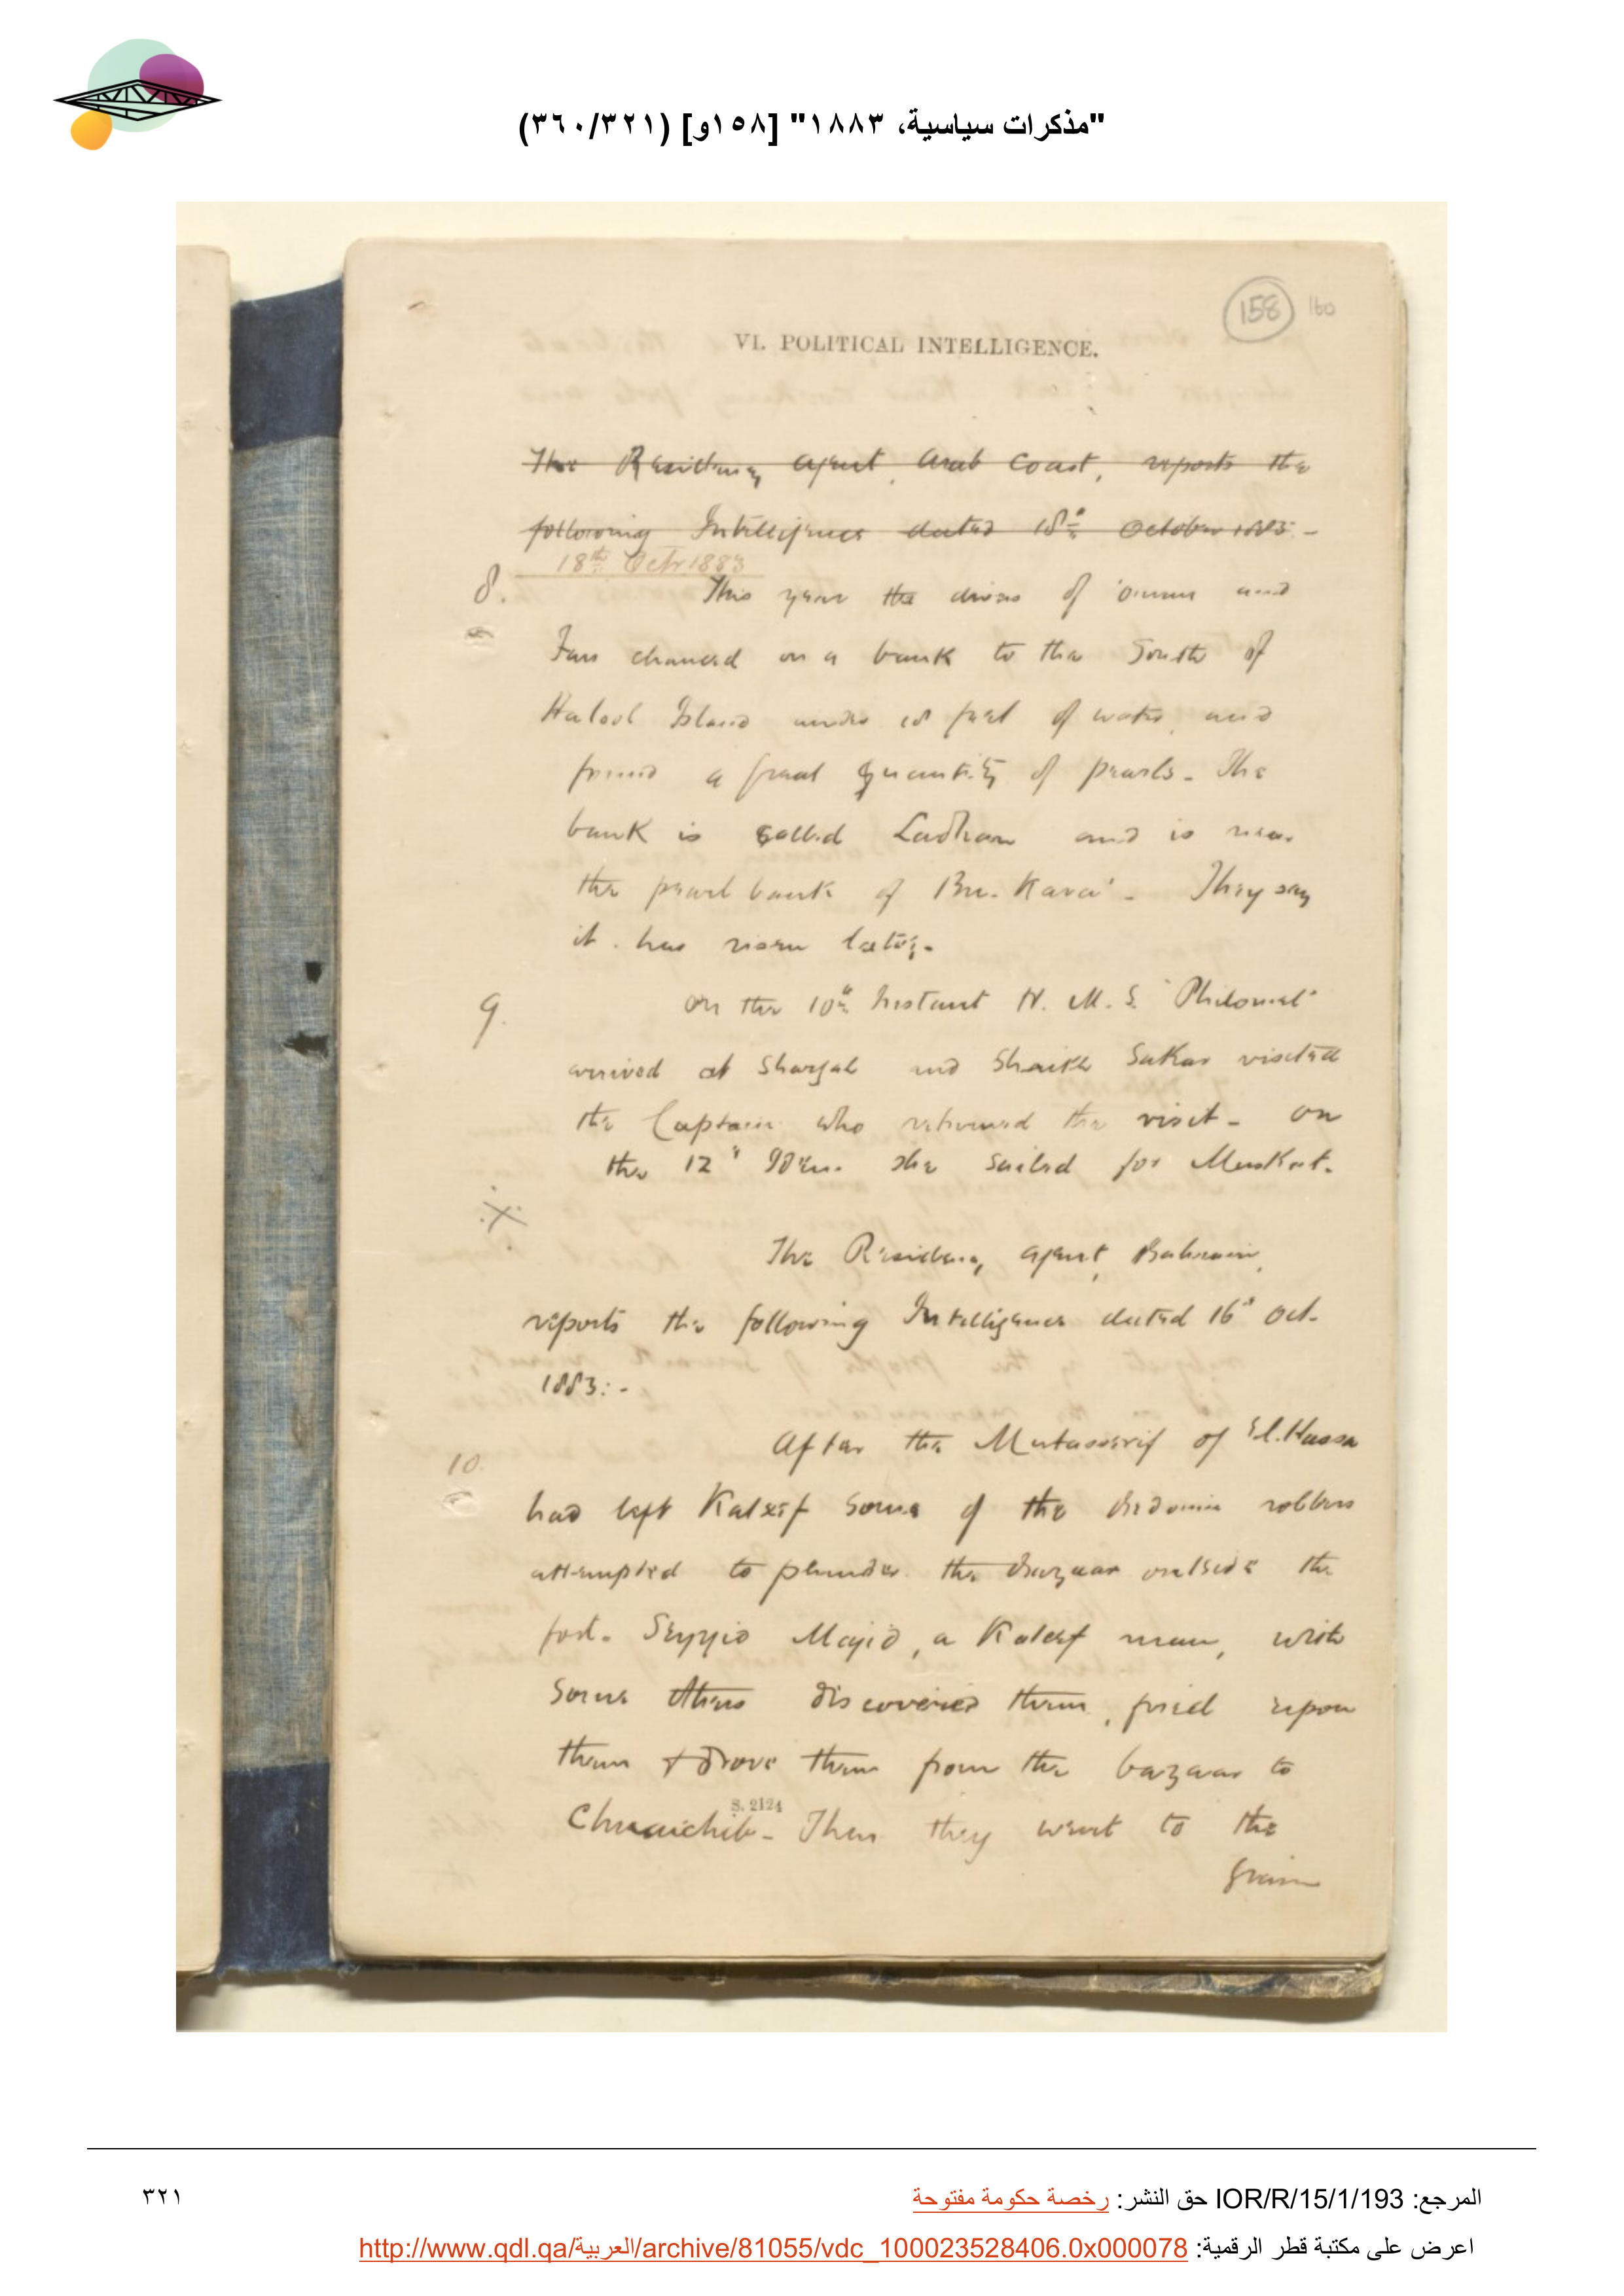 "مذكرات سياسية، ١٨٨٣" [١٥٨و] (٣٦٠/٣٢١)
158 160
VI. POLITICAL INTELLIGENCE.
The Residency Agent, Arab Coast, reports the
following Intelligence dated 18th October 1883:-
18th Octr 1883
8. This year the divers of Oman and
Fars chanced on a bank to the South of
Halool Island under 18 feet of water, and
found a great quantity of pearls. The
bank is called and is near
the pearl bank of They say
it has risen lately.
9. On the 10th Instant H. M. S. "Philomel"
arrived at Shargah and Shaikh Sakar visited
the Captain who returned the visit. On
the 12th Idem she sailed for Muskat.
The Residency Agent, Bahrain,
reports the following Intelligence dated 16th Oct.
1883:-
10. After the Mutasserif of El. Hassa
had left Kateef some of the Bedouin robbers
attempted to plunder the Bazaar outside the
fort. Seyyid Majid, a Kateef man, with
some others discovered them, fired upon
them & drove them from the bazaar to
Then they went to the
S. 2124
grain
المرجع: IOR/R/15/1/193 حق النشر: رخصة حكومة مفتوحة
٣٢١
اعرض على مكتبة قطر الرقمية: http://www.qdl.qa/العربية/archive/81055/vdc_100023528406.0x000078